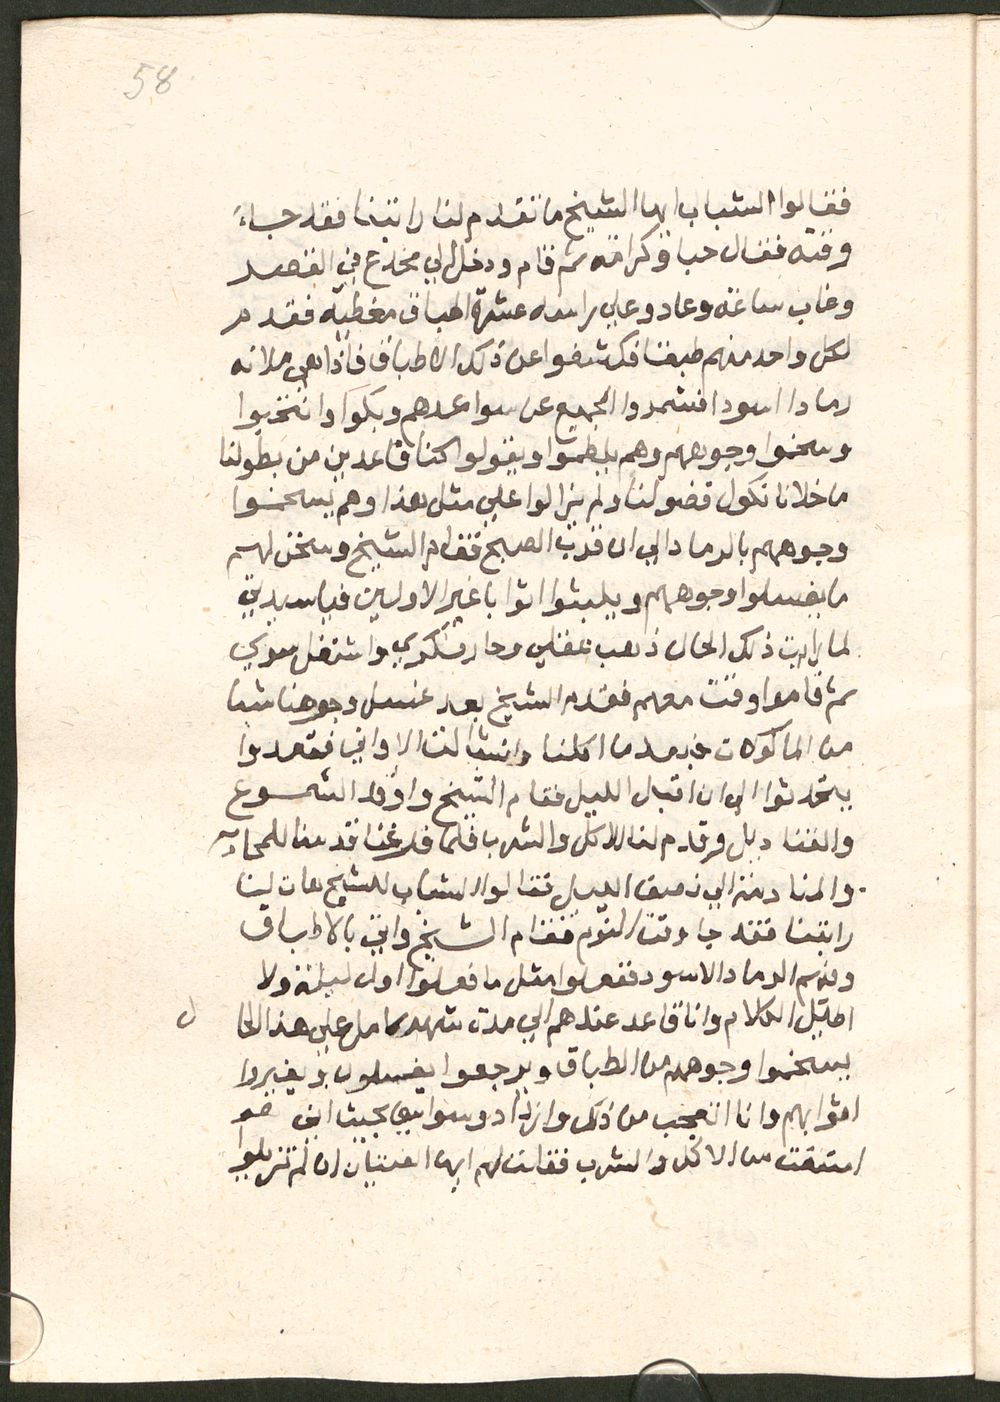 58
فقالوا الشباب ايها الشيخ ما تقدم لنا راتبنا فقد جاء
وقته فقال حبا وكرامه ثم قام ودخل الي مخدع في القصر
وغاب ساعة وعاد وعلي راسه عشرة اطباق مغطيه فقدم
لكل واحد منهم طبقا فكشفوا عن ذلك الاطباق فاذا هي ملانه
رمادا اسودا فشمروا الجميع عن سواعدهم وبكوا وانتخبوا
وسخموا وجوههم وهم يلطموا ويقولوا كنا قاعدين من بطولنا
ما خلانا نكول فضولنا ولم يزالوا علي مثل هذا وهم يسخموا
وجوههم بالرماد الي ان قرب الصبح فقام الشيخ وسخن لهم
ما يغسلوا وجوههم ويلبثوا اثوابا غير الاولين فيا سيدتي
لما رايت ذلك الحال ذهب عقلي وحار فكري واشتغل سري
ثم قاموا وقمت معهم فقدم الشيخ بعد غسل وجوهنا شيا
من الماكولات فبعد ما اكلنا وانشالت الاواني فقعدوا
يتحدثوا الي ان اقبل الليل فقام الشيخ واوقد الشموع
والقناديل وقدم لنا للاكل والشرب فلما فرغنا قدمنا للمحاد
والمنادمة الي نصف الليل فقالوا الشباب للشيخ هات لينا
راتبنا فقد جا وقت النوم فقام الشيخ واتي بالاطباق
وفيهم الرماد الاسود ففعلوا مثل ما فعلوا اول ليلة ولا
اطيل الكلام وانا قاعد عندهم الي مدت شهر كامل علي هذا الحا ل
يسخموا وجوههم من الطباق ويرجعوا يغسلون ويغيروا
اثوابهم وانا اتعجب من ذلك وازداد وسواسي بحيث اني
امتنعت من الاكل والشرب فقلت لهم ايها الفتيان ان لم تزيلوا